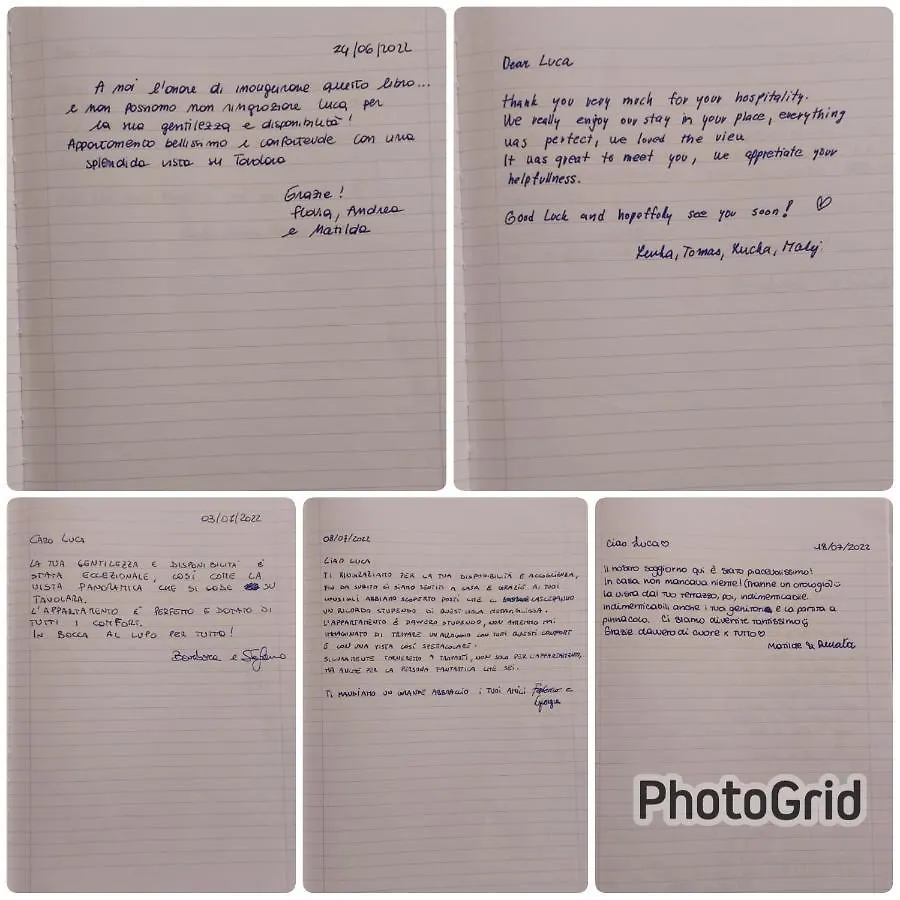 24/06/2022
A noi l'onore di inaugurare questo libro...
e non possiamo non ringraziare Luca per
la sua gentilezza e disponibilità!
Appartamento bellissimo e confortevole con una
splendida vista su Tavolara
Grazie!
Flavia, Andrea
e Matilda
Dear Luca
thank you very much for your hospitality.
We really enjoy our stay in your place, everything
was perfect, we loved the view
It was great to meet you, we appretiate your
helpfullness.
Good Luck and hopeffoly see you soon!
Lenka, Tomas, Kucka, Matij
03/07/2022
CARO LUCA
LA TUA GENTILEZZA E DISPONIBILITA' E'
STATA ECCEZIONALE, COSÌ COME LA
VISTA PANORAMICA CHE SI GODE SU
TAVOLARA.
L'APPARTAMENTO E' PERFETTO E DOTATO DI
TUTTI I COMFORT.
IN BOCCA AL LUPO PER TUTTO!
Barbara e Stefano
08/07/2022
CIAO LUCA
TI RINGRAZIAMO PER LA TUA DISPONIBILITÀ E ACCOGLIENZA,
FIN DA SUBITO CI SIAMO SENTITI A CASA E GRAZIE AI TUOI
CONSIGLI ABBIAMO SCOPERTO POSTI CHE CI LASCERANNO
UN RICORDO STUPENDO DI QUEST'ISOLA MERAVIGLIOSA.
L'APPARTAMENTO È DAVVERO STUPENDO, NON AVREMMO MAI
IMMAGINATO DI TROVARE UN ALLOGGIO CON TUTTI QUESTI COMFORT
E CON UNA VISTA COSÌ SPETTACOLARE.
SICURAMENTE TORNEREMO A TROVARTI, NON SOLO PER L'APPARTAMENTO,
MA ANCHE PER LA PERSONA FANTASTICA CHE SEI.
TI MANDIAMO UN GRANDE ABBRACCIO i TUOI AMICI Federico e
Giorgia
Ciao Luca♡
18/07/2022
Il nostro soggiorno qui è stato piacevolissimo!
In casa non mancava niente! (tranne un orologio)
La vista dal tuo terrazzo, poi, indimenticabile.
Indimenticabili anche i tuoi genitori e la partita a
pinnacolo. Ci siamo divertite tantissimo
Grazie davvero di cuore x tutto♡
Matilde & Renata
PhotoGrid